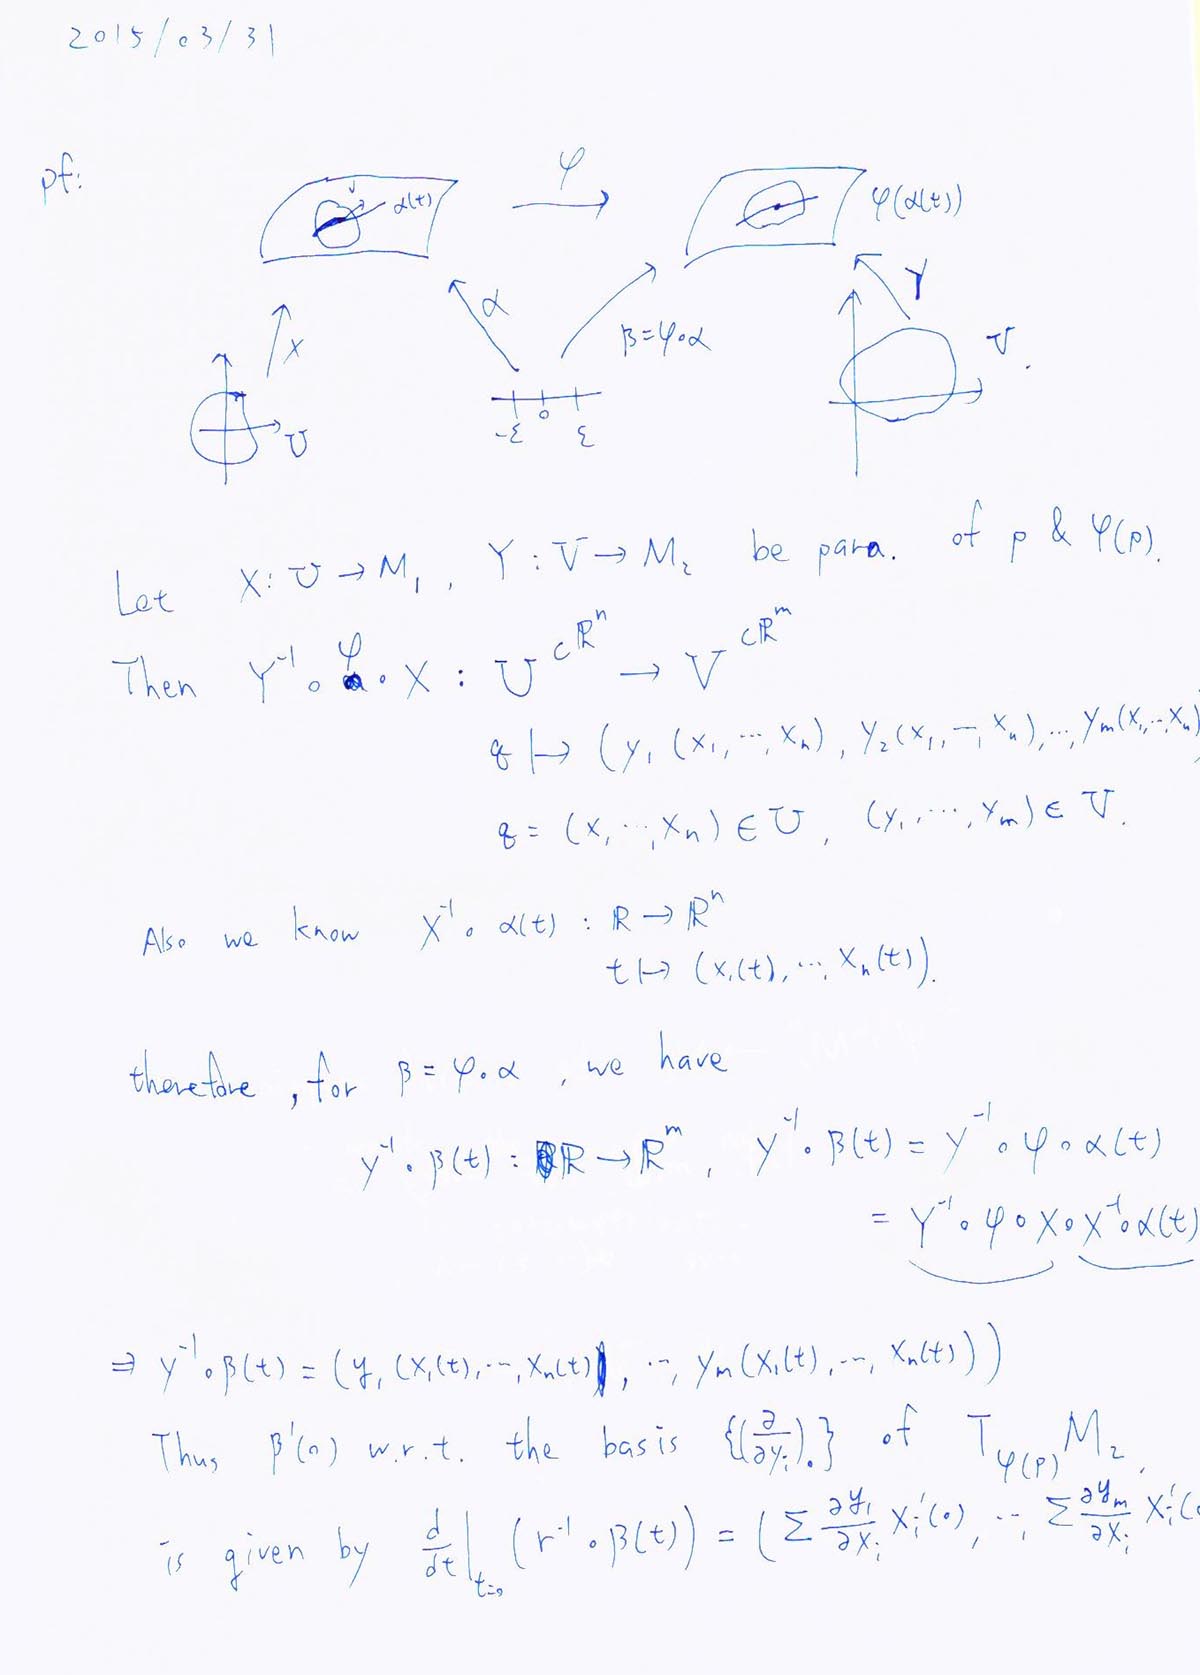 2015/03/31
pf:
φ
v
α(t)
φ(α(t))
X
α
β=φ∘α
Y
U
-ε 0 ε
V.
Let X: U → M₁, Y: V → M₂ be para. of p & φ(p).
Then Y⁻¹∘φ∘X : U ⊂ ℝⁿ → V ⊂ ℝᵐ
q ↦ (y₁(x₁,⋯,xₙ), y₂(x₁,–,xₙ),⋯,yₘ(x₁,⋯,xₙ)
q = (x₁⋯,xₙ) ∈ U, (y₁,⋯,yₘ) ∈ V.
Also we know X⁻¹∘α(t) : ℝ → ℝⁿ
t ↦ (x₁(t),⋯,xₙ(t)).
therefore, for β = φ∘α, we have
Y⁻¹∘β(t) : ℝ → ℝᵐ, Y⁻¹∘β(t) = Y⁻¹∘φ∘α(t)
= Y⁻¹∘φ∘X∘X⁻¹∘α(t)
⇒ Y⁻¹∘β(t) = (y₁(x₁(t),⋯,xₙ(t)), ⋯, yₘ(x₁(t),⋯,xₙ(t)))
Thus β'(0) w.r.t. the basis {(∂/∂yᵢ)₀} of T_φ(p) M₂,
is given by d/dt|t=0 (Y⁻¹∘β(t)) = (Σ ∂y₁/∂xᵢ xᵢ'(0), ⋯, Σ ∂yₘ/∂xᵢ xᵢ'(0